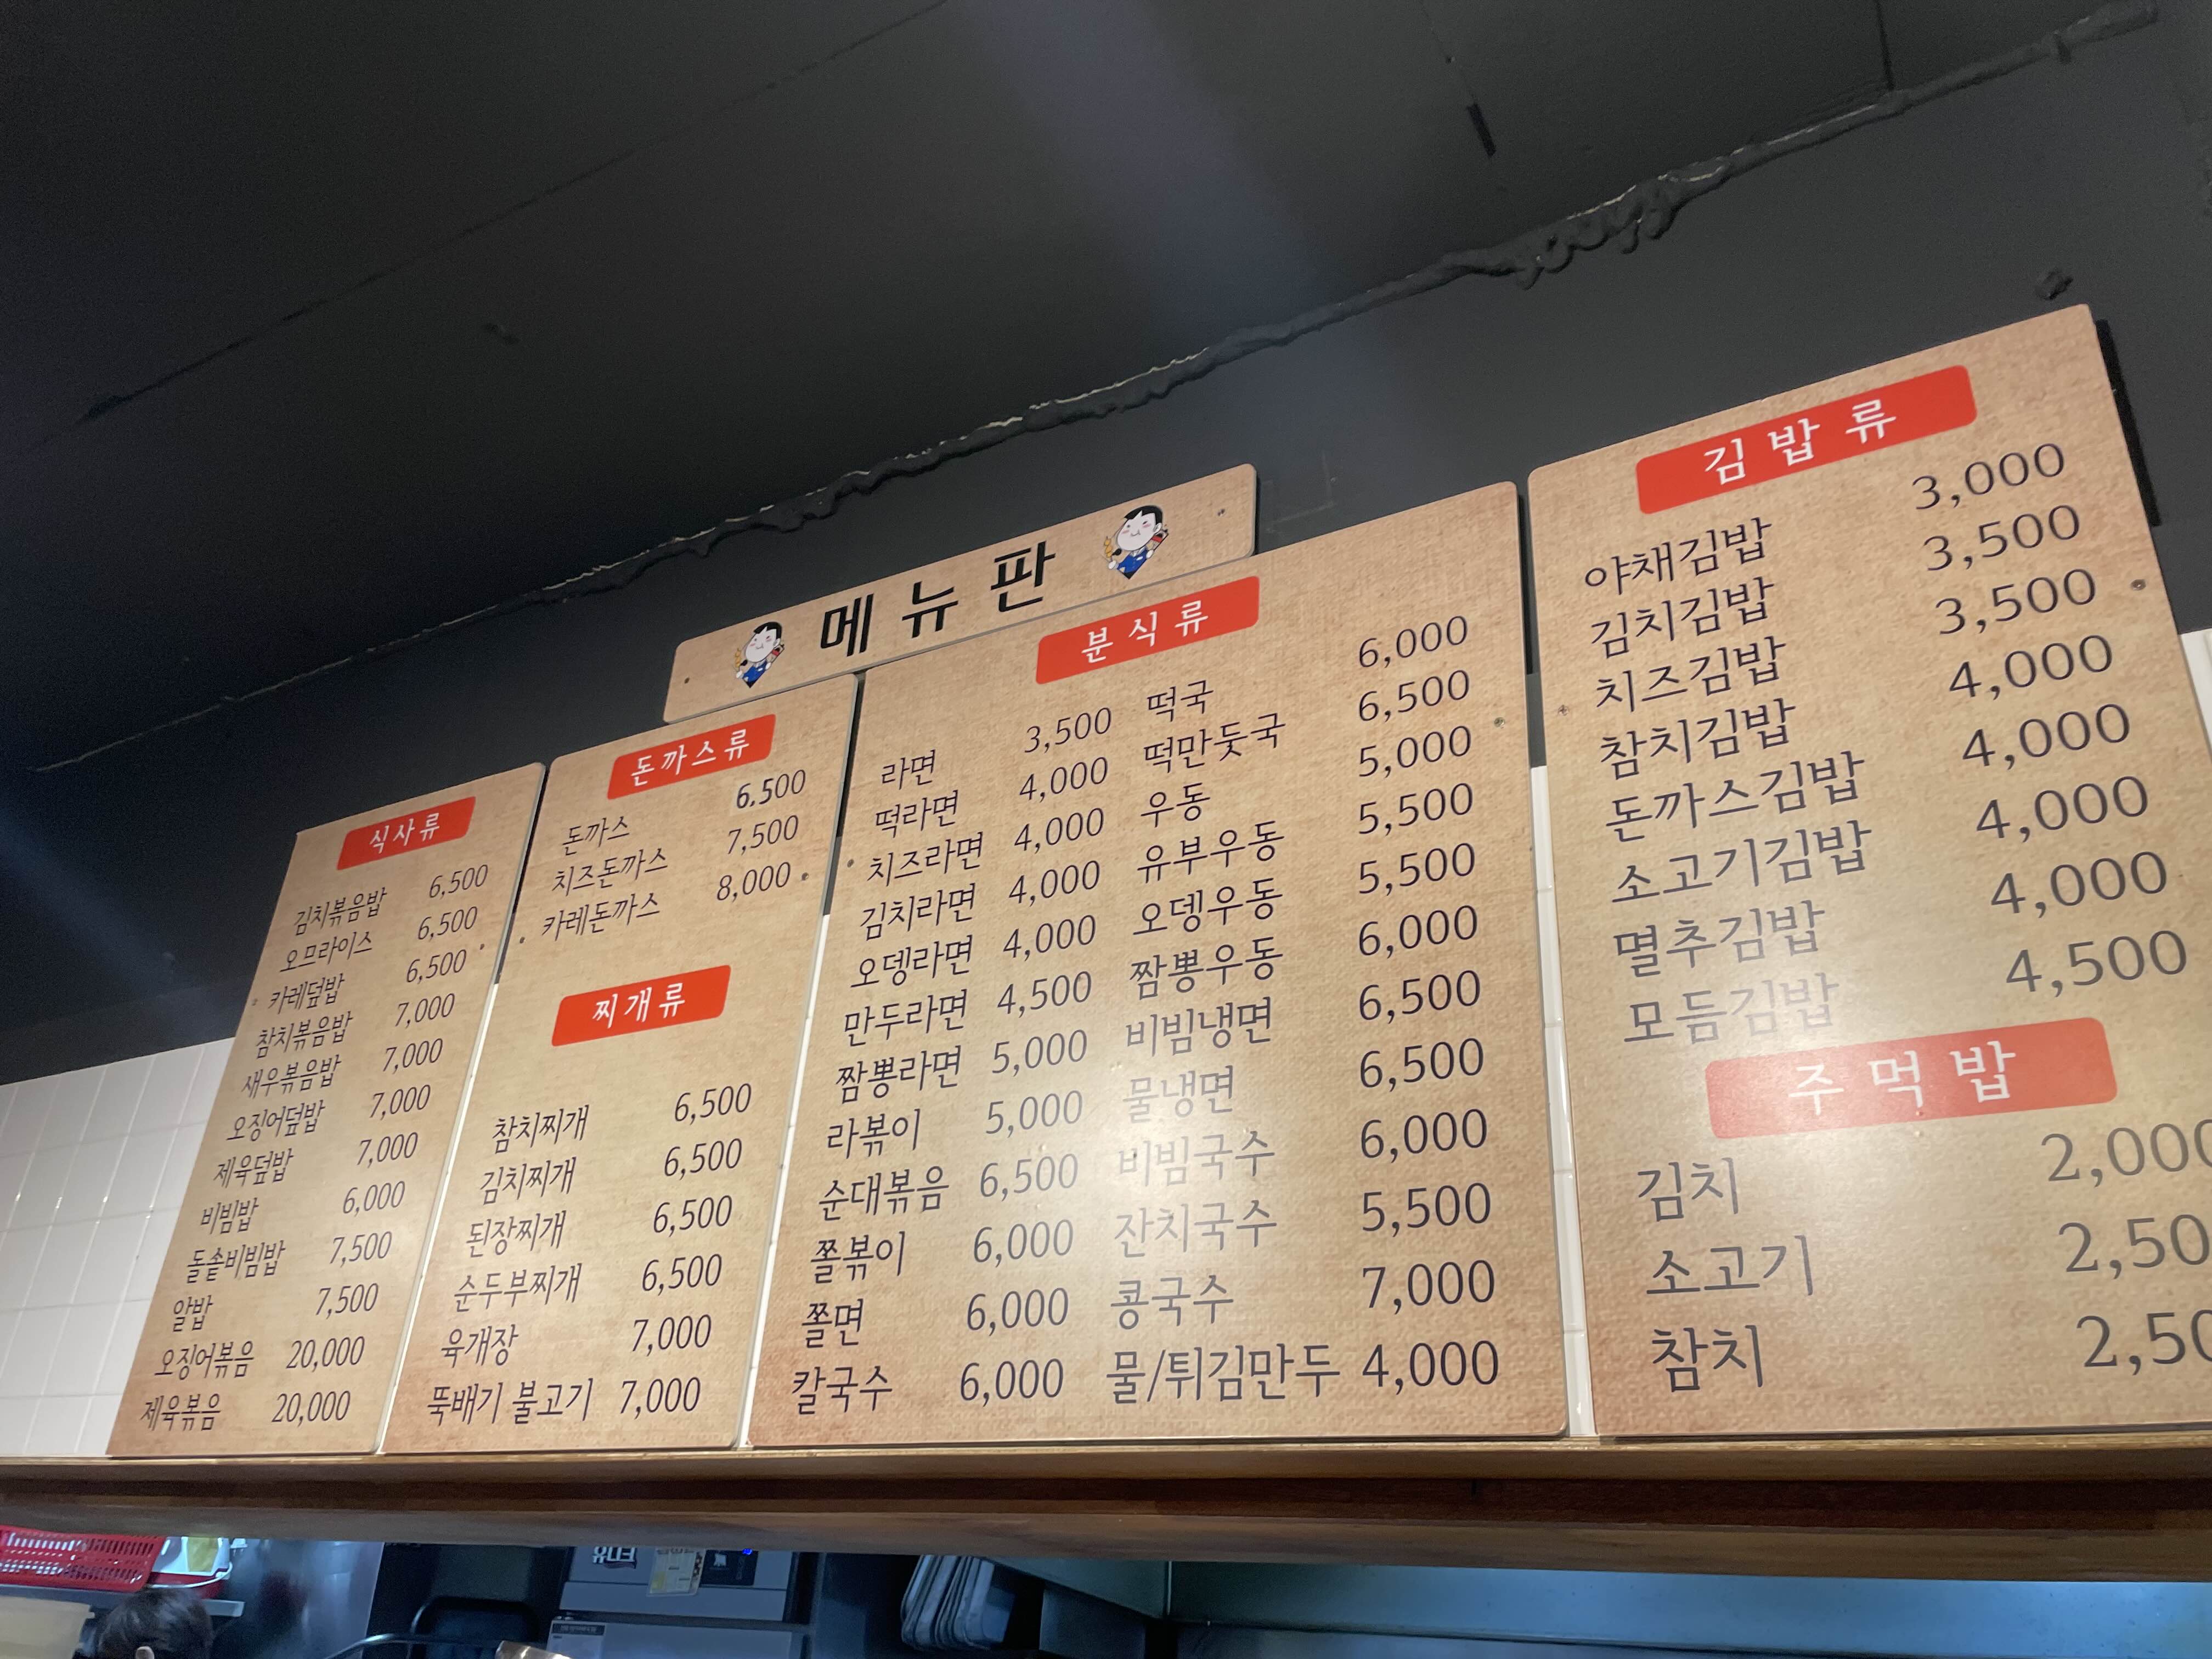 메뉴판
식사류
김치볶음밥 6,500
오므라이스 6,500
카레덮밥 6,500
참치볶음밥 7,000
새우볶음밥 7,000
오징어덮밥 7,000
제육덮밥 7,000
비빔밥 6,000
돌솥비빔밥 7,500
알밥 7,500
오징어볶음 20,000
제육볶음 20,000
돈까스류
돈까스 6,500
치즈돈까스 7,500
카레돈까스 8,000
찌개류
참치찌개 6,500
김치찌개 6,500
된장찌개 6,500
순두부찌개 6,500
육개장 7,000
뚝배기 불고기 7,000
분식류
라면 3,500 떡국 6,000
떡라면 4,000 떡만둣국 6,500
치즈라면 4,000 우동 5,000
김치라면 4,000 유부우동 5,500
오뎅라면 4,000 오뎅우동 5,500
만두라면 4,500 짬뽕우동 6,000
짬뽕라면 5,000 비빔냉면 6,500
라볶이 5,000 물냉면 6,500
순대볶음 6,500 비빔국수 6,000
쫄볶이 6,000 잔치국수 5,500
쫄면 6,000 콩국수 7,000
칼국수 6,000 물/튀김만두 4,000
김밥류
야채김밥 3,000
김치김밥 3,500
치즈김밥 3,500
참치김밥 4,000
돈까스김밥 4,000
소고기김밥 4,000
멸추김밥 4,000
모듬김밥 4,500
주먹밥
김치 2,000
소고기 2,50
참치 2,50
유니크